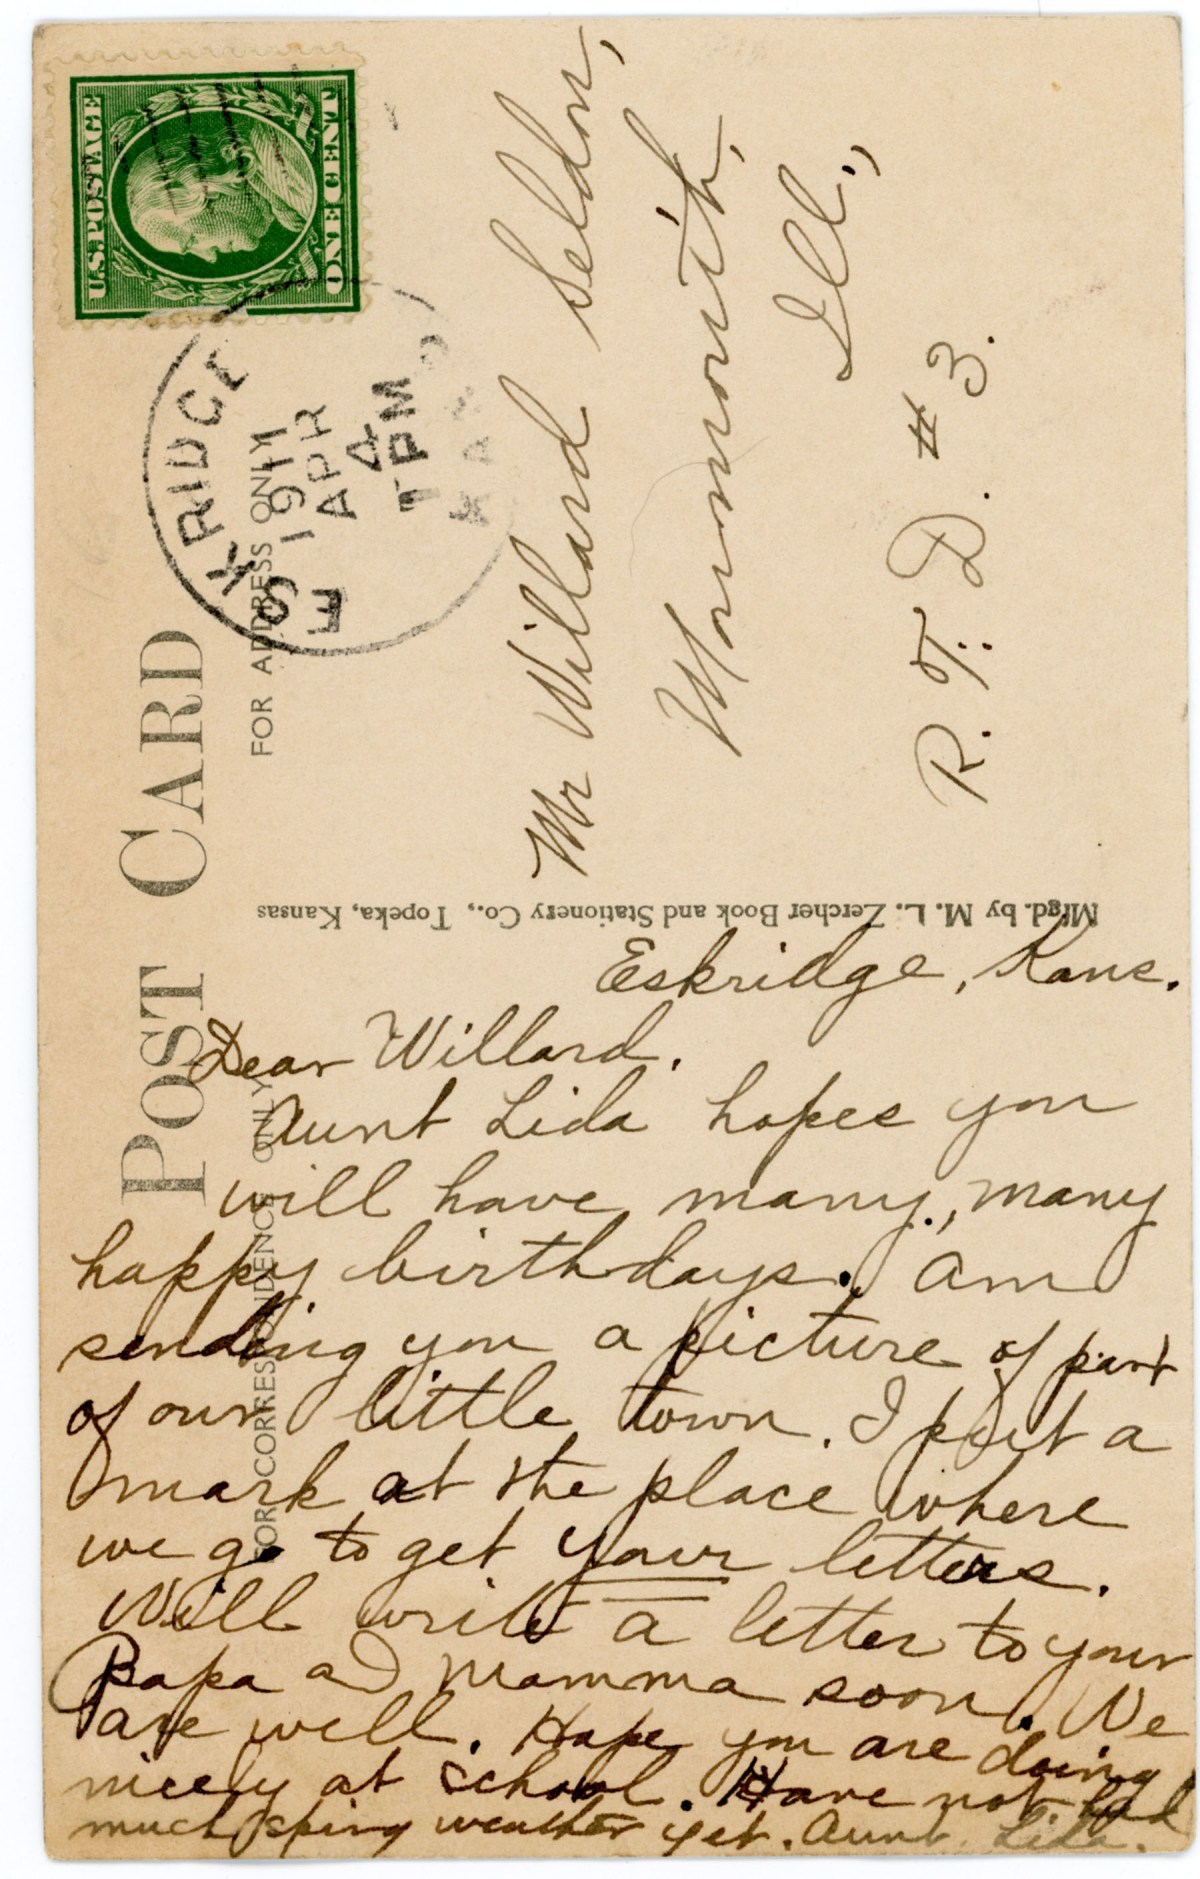 U.S. POSTAGE
ONE CENT
ESKRIDGE
KANS
APR
4
7PM
1911
POST CARD
FOR ADDRESS ONLY
FOR CORRESPONDENCE ONLY
Mfgd. by M. L. Zercher Book and Stationery Co., Topeka, Kansas
Mr Willard Seldon,
Monmouth,
Ill.,
R. F. D. # 3.
Eskridge, Kans.
Dear Willard.
Aunt Lida hopes you
will have many, many
happy birthdays. Am
sending you a picture of part
of our little town. I put a
mark at the place where
we go to get your letters.
Will write a letter to your
Papa ad Mamma soon. We
are well. Hope you are doing
nicely at school. Have not had
much spring weather yet. Aunt Lida.